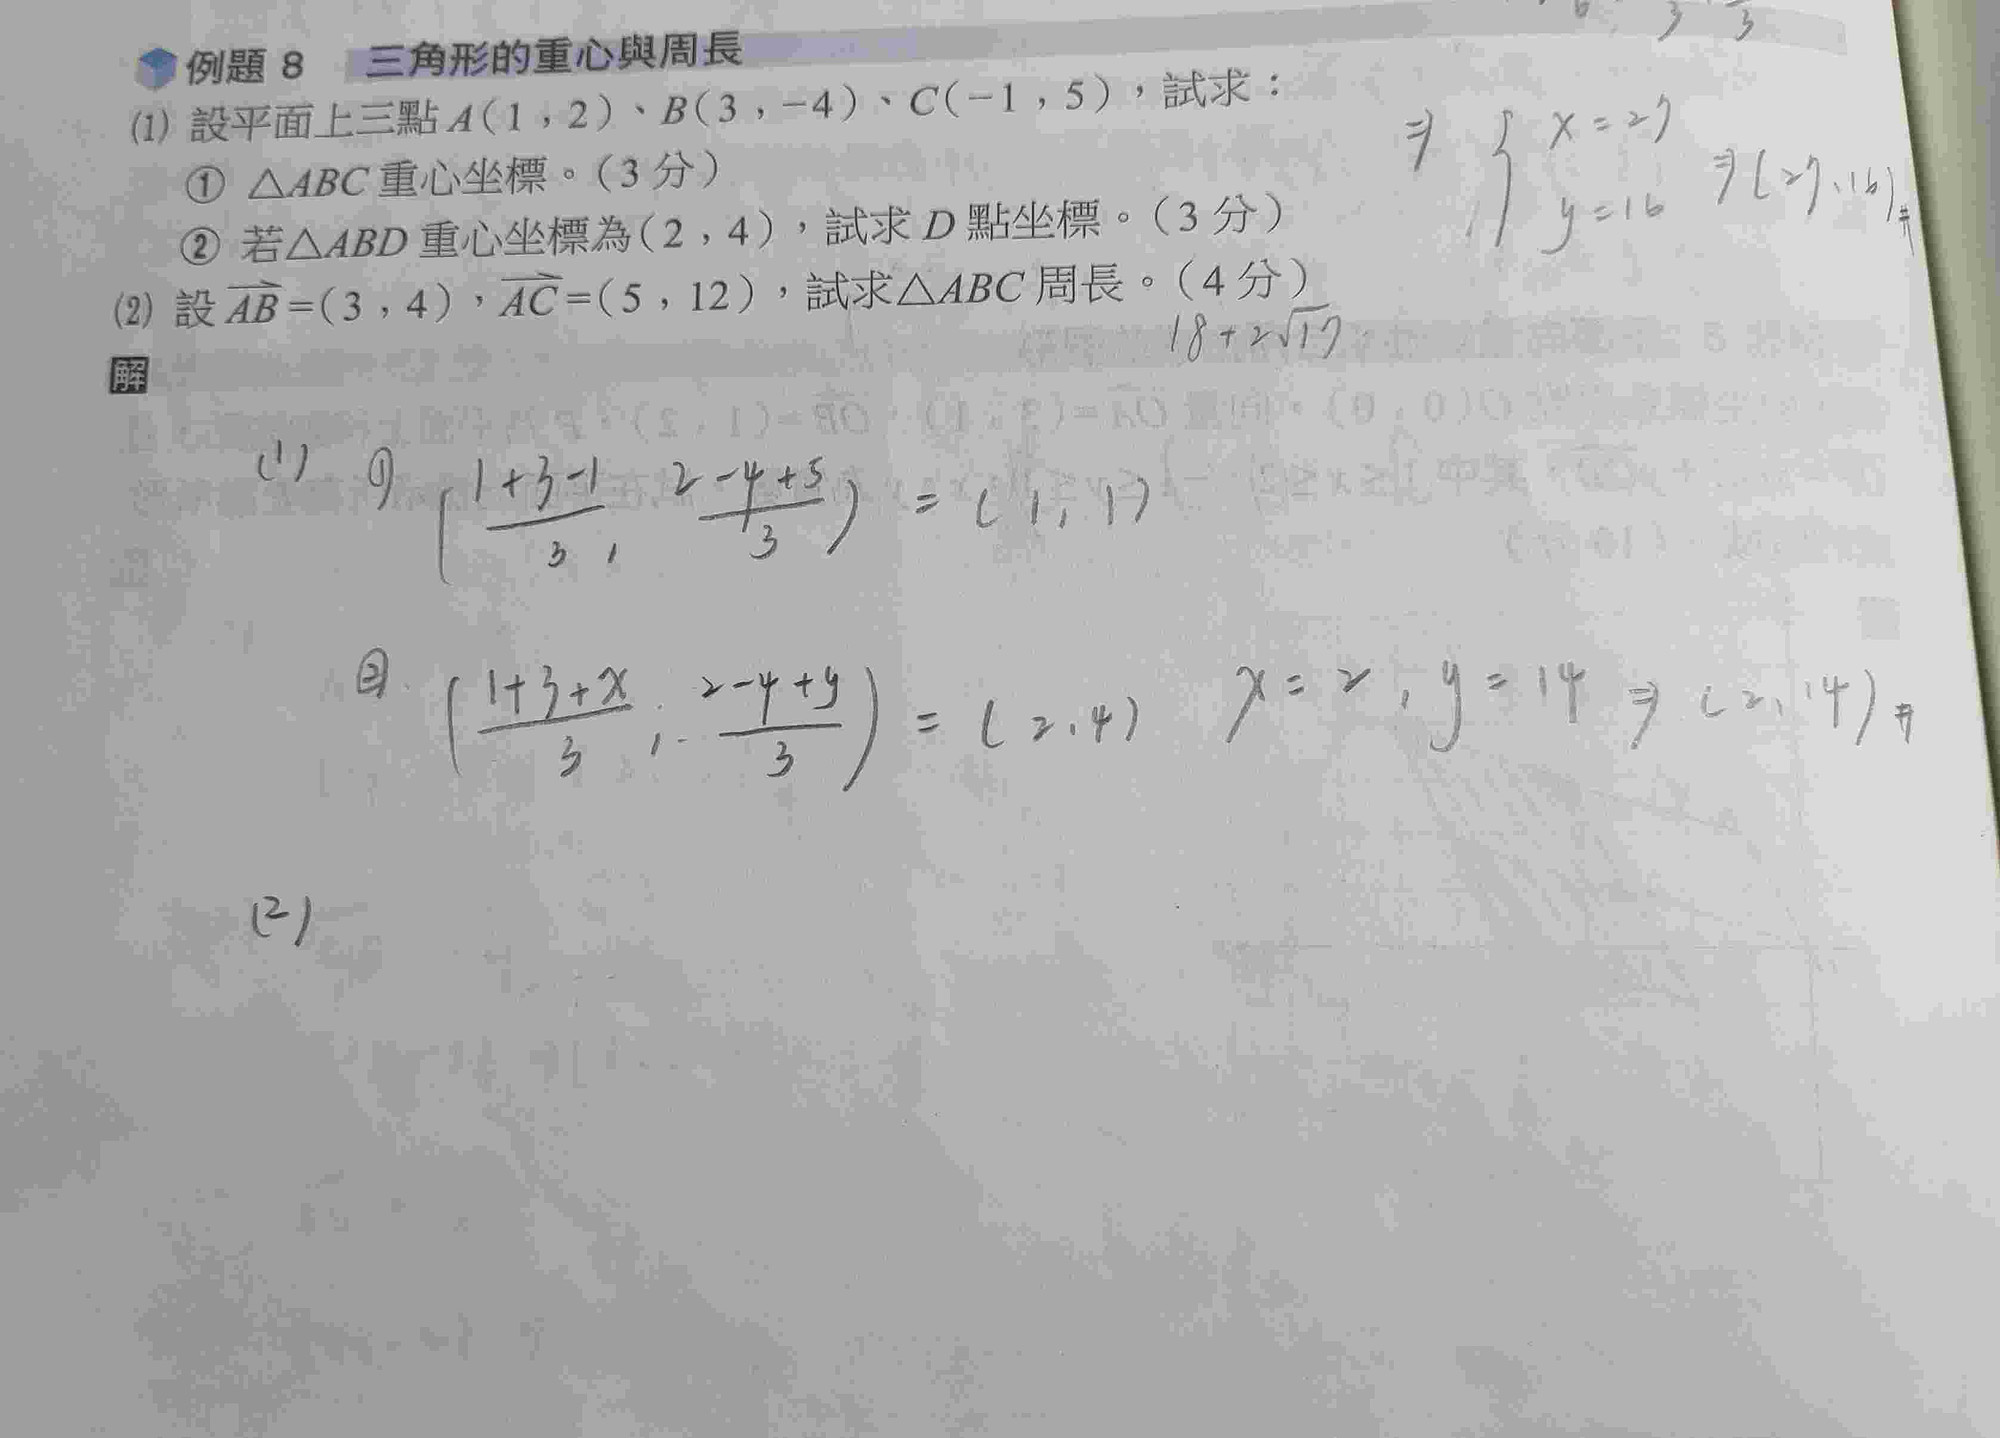 例題 8 三角形的重心與周長
(1) 設平面上三點 A(1,2)、B(3,-4)、C(-1,5),試求:
① △ABC 重心坐標。(3 分)
② 若△ABD 重心坐標為(2,4),試求 D 點坐標。(3 分)
(2) 設 \overrightarrow{AB}=(3,4),\overrightarrow{AC}=(5,12),試求△ABC 周長。(4 分)
18+2√17
⇒ { x=27
y=16 ⇒(27,16)#
解
(1) ① (\frac{1+3-1}{3}, \frac{2-4+5}{3}) = (1,1)
② (\frac{1+3+x}{3}, \frac{2-4+y}{3}) = (2,4) x=2, y=14 ⇒ (2,14)#
(2)